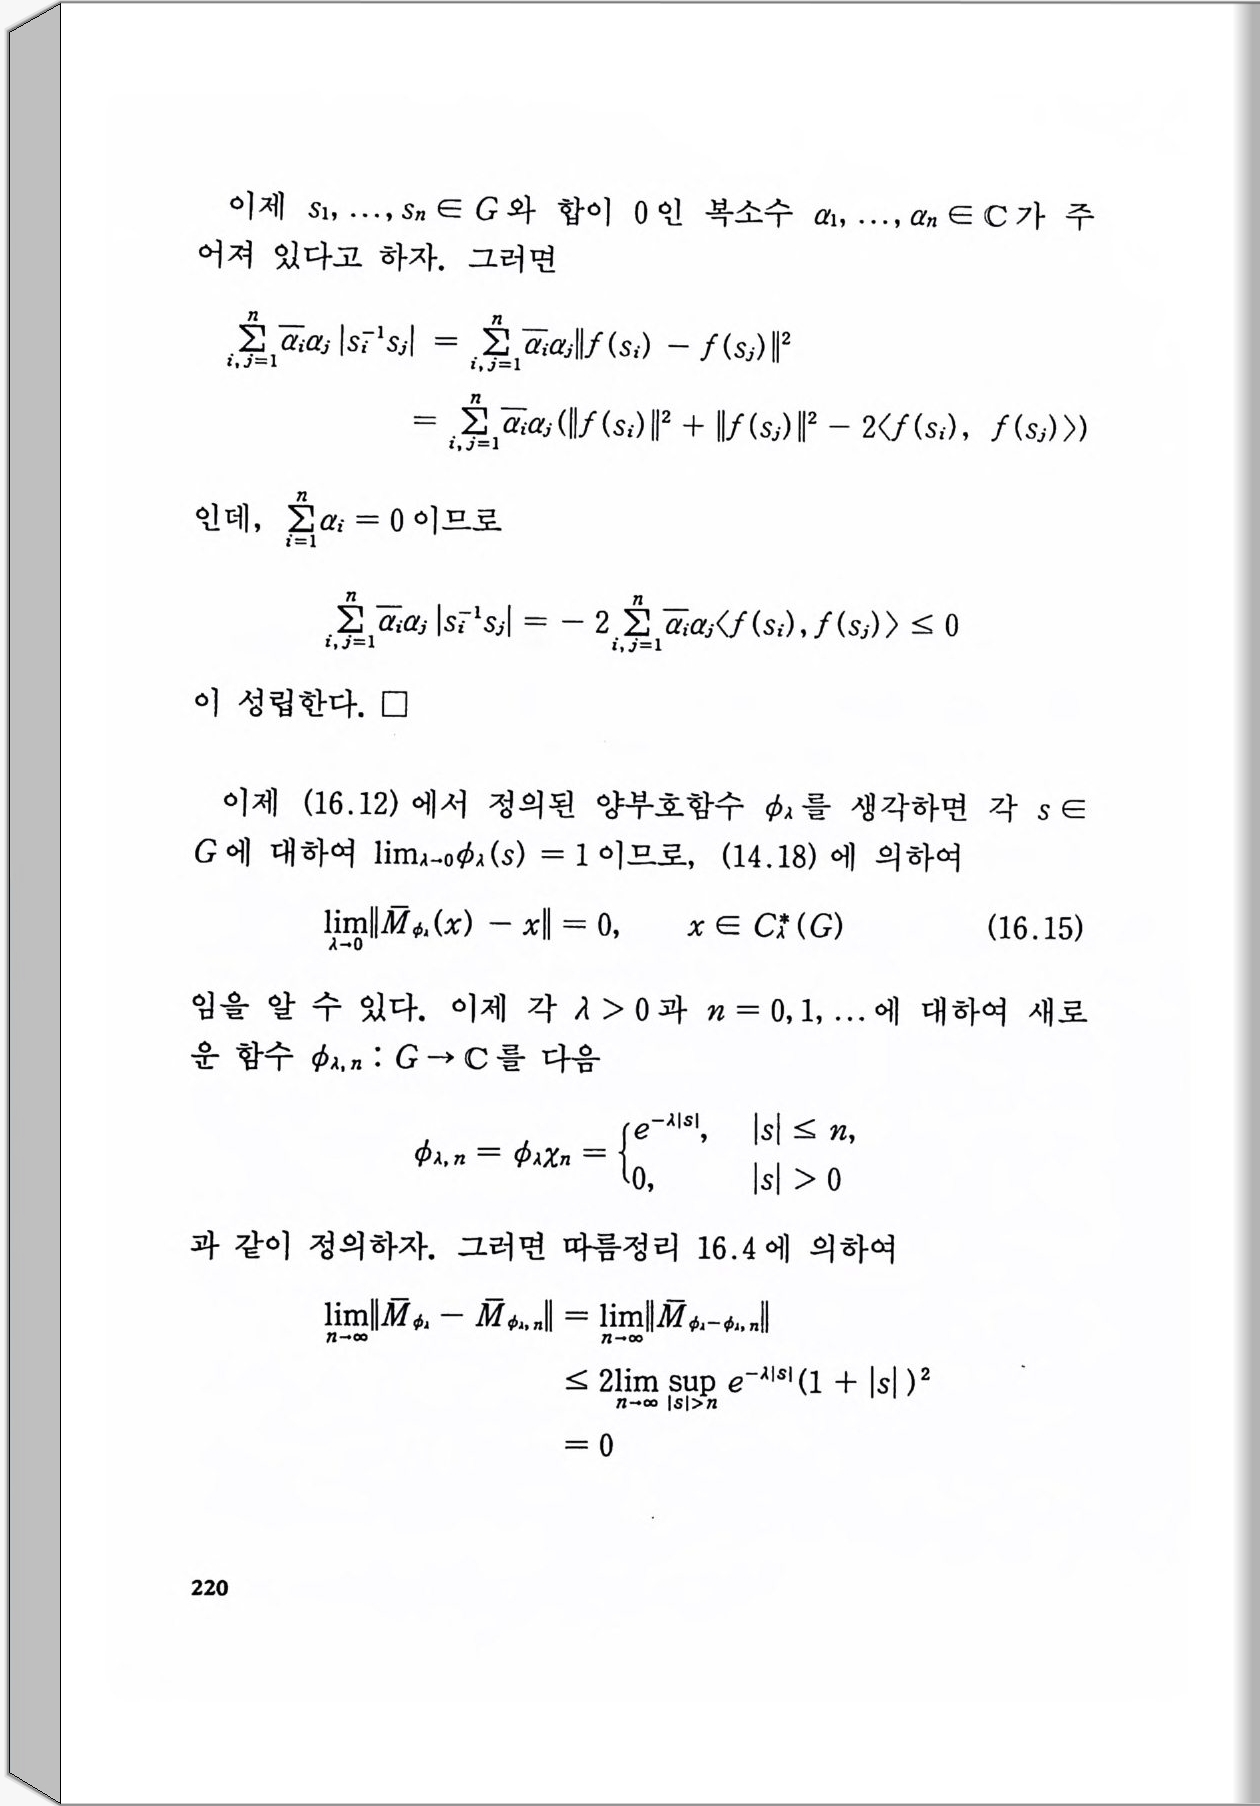 이제 s₁, …, sₙ ∈ G와 합이 0인 복소수 α₁, …, αₙ ∈ ℂ가 주
어져 있다고 하자. 그러면
$\sum_{i,j=1}^{n} \overline{\alpha}_i\alpha_j |s_i^{-1}s_j| = \sum_{i,j=1}^{n} \overline{\alpha}_i\alpha_j \|f(s_i) - f(s_j)\|^2$
$= \sum_{i,j=1}^{n} \overline{\alpha}_i\alpha_j (\|f(s_i)\|^2 + \|f(s_j)\|^2 - 2\langle f(s_i), f(s_j)\rangle)$
인데, $\sum_{i=1}^{n} \alpha_i = 0$이므로
$\sum_{i,j=1}^{n} \overline{\alpha}_i\alpha_j |s_i^{-1}s_j| = -2\sum_{i,j=1}^{n} \overline{\alpha}_i\alpha_j \langle f(s_i), f(s_j)\rangle \leq 0$
이 성립한다. □
이제 (16.12)에서 정의된 양부호함수 $\phi_\lambda$를 생각하면 각 s ∈
G에 대하여 $\lim_{\lambda \to 0}\phi_\lambda(s) = 1$이므로, (14.18)에 의하여
$\lim_{\lambda \to 0}\|\overline{M}_{\phi_\lambda}(x) - x\| = 0, \quad x \in C_\lambda^*(G)$ (16.15)
임을 알 수 있다. 이제 각 λ > 0과 n = 0, 1, …에 대하여 새로
운 함수 $\phi_{\lambda,n}$ : G → ℂ를 다음
$\phi_{\lambda,n} = \phi_\lambda\chi_n = \begin{cases} e^{-\lambda|s|}, & |s| \leq n, \\ 0, & |s| > 0 \end{cases}$
과 같이 정의하자. 그러면 따름정리 16.4에 의하여
$\lim_{n \to \infty}\|\overline{M}_{\phi_\lambda} - \overline{M}_{\phi_{\lambda,n}}\| = \lim_{n \to \infty}\|\overline{M}_{\phi_\lambda - \phi_{\lambda,n}}\|$
$\leq 2\lim_{n \to \infty} \sup_{|s|>n} e^{-\lambda|s|}(1 + |s|)^2$
$= 0$
220